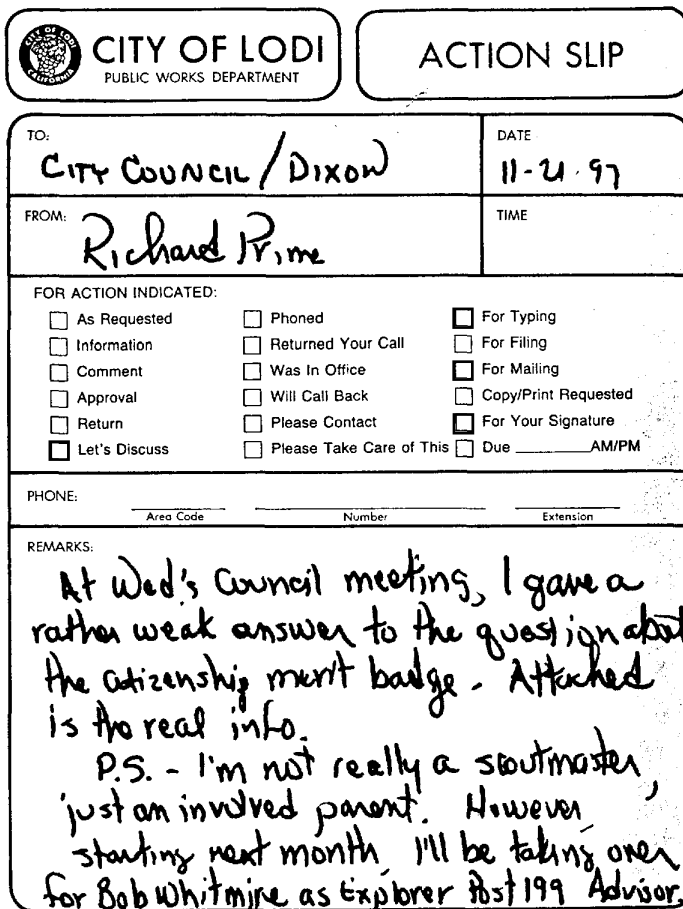 CITY OF LODI
CALIFORNIA
CITY OF LODI
PUBLIC WORKS DEPARTMENT
ACTION SLIP
TO:
CITY COUNCIL / DIXON
DATE
11-21-97
FROM:
Richard Prime
TIME
FOR ACTION INDICATED:
As Requested
Information
Comment
Approval
Return
Let's Discuss
Phoned
Returned Your Call
Was In Office
Will Call Back
Please Contact
Please Take Care of This
For Typing
For Filing
For Mailing
Copy/Print Requested
For Your Signature
Due ________AM/PM
PHONE:
Area Code Number Extension
REMARKS:
At Wed's Council meeting, I gave a
rather weak answer to the question about
the citizenship merit badge. Attached
is the real info.
P.S. - I'm not really a scoutmaster,
just an involved parent. However,
starting next month I'll be taking over
for Bob Whitmire as Explorer Post 199 Advisor.